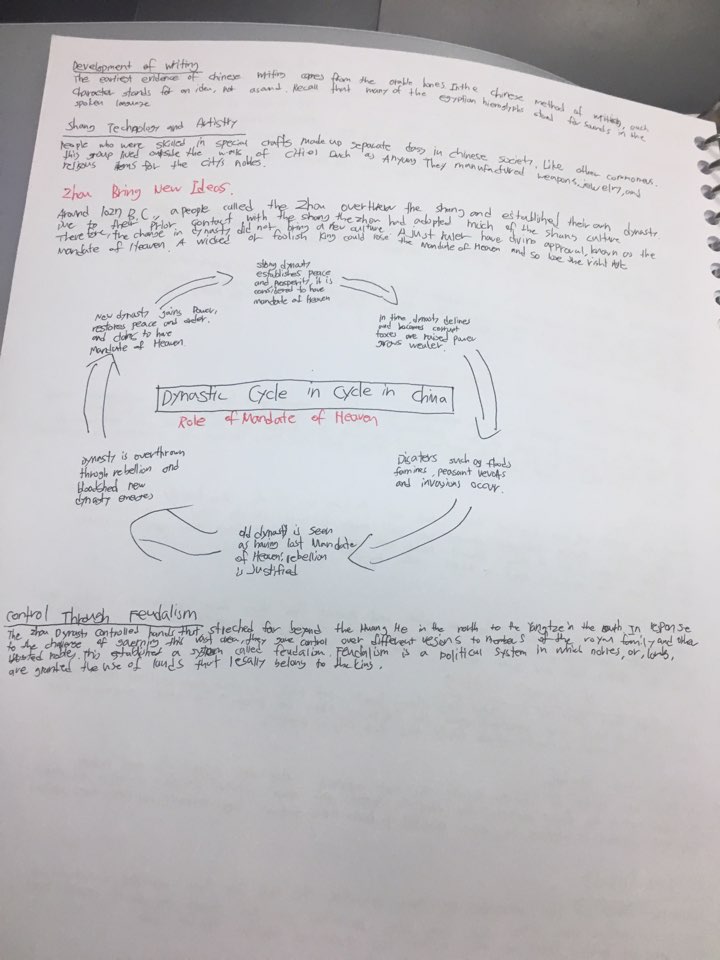 Development of writing
The earliest evidence of chinese writing comes from the oracle bones In the chinese method of writing, each
character stands for an idea, not a sound. Recall that many of the egyptian hieroglyphs stood for sounds in the
spoken language
Shang Technology and Artistry
people who were skilled in special crafts made up separate class in Chinese society. Like other commoners.
this group lived outside the walls of cities such as Anyang They manufactured weapons, jewelry, and
religious items for the city's nobles.
Zhou Bring New Ideas.
Around 1027 B.C, a people called the Zhou overthrew the shang and established their own dynasty.
Due to their prior contact with the shang the zhou had adopted much of the shang culture
Therefore, the change in dynasty did not bring a new culture. A just ruler have divine approval, known as the
Mandate of Heaven. A wicked or foolish king could lose the Mandate of Heaven and so lose the right
strong dynasty
establishes peace
and prosperity, it is
considered to have
mandate of Heaven
New dynasty gains power,
restores peace and order.
and claims to have
Mandate of Heaven.
In time, dynasty defines
and becomes corrupt
taxes are raised power
grows weaker.
Dynastic Cycle in Cycle in China
Role of Mandate of Heaven
Dynasty is overthrown
through rebellion and
bloodshed new
dynasty emerges
Disaters such as floods
famines, peasant revolts
and invasions occur.
old dynasty is seen
as having lost Mandate
of Heaven; rebellion
is Justified
Control Through Feudalism
The Zhou Dynasty controlled lands that streched far beyond the Huang He in the north to the Yangtze in the south In reponse
to the challenge of governing this vast area, they gave control over different regions to members of the royal family and other
trusted nobles. This established a system called feudalism. Feudalism is a political system in which nobles, or, lords,
are granted the use of lands that legally belong to the king.